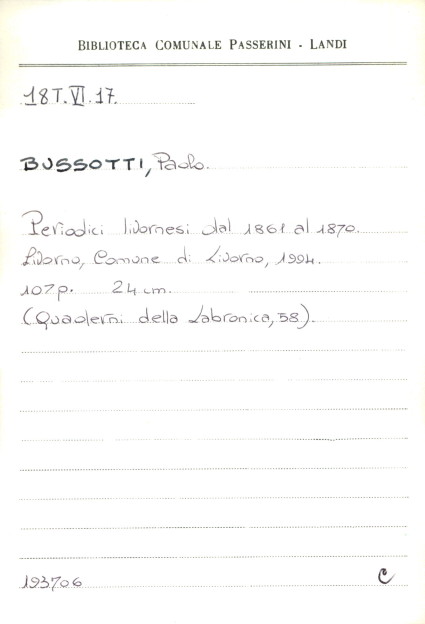 BIBLIOTECA COMUNALE PASSERINI - LANDI
18T.VI.17.
BUSSOTTI, Paolo.
Periodici livornesi dal 1861 al 1870.
Livorno, Comune di Livorno, 1994.
107p. 24 cm.
(Quaderni della Labronica, 58).
193706 C